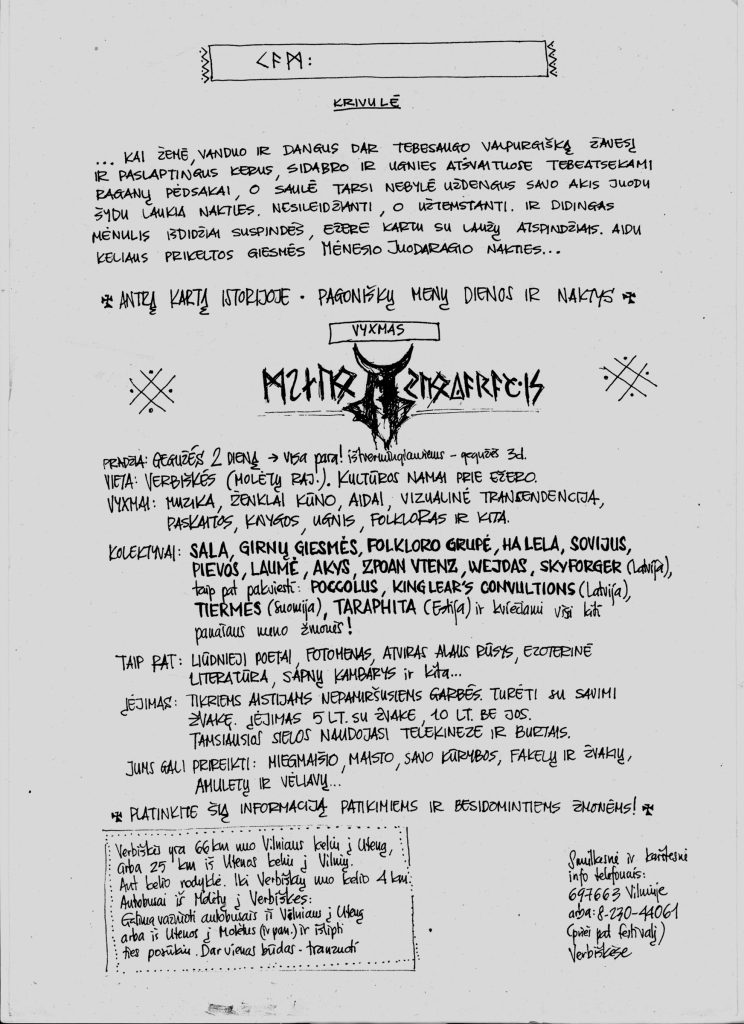 ᚲᚨᛗ:
KRIVULĖ
... KAI ŽEMĖ, VANDUO IR DANGUS DAR TEBESAUGO VALPURGIŠKĄ ŽAVESĮ
IR PASLAPTINGUS KERUS, SIDABRO IR UGNIES ATŠVAITUOSE TEBEATSEKAMI
RAGANŲ PĖDSAKAI, O SAULĖ TARSI NEBYLĖ UŽDENGUS SAVO AKIS JUODU
ŠYDU LAUKIA NAKTIES. NESILEIDŽIANTI, O UŽTEMSTANTI. IR DIDINGAS
MĖNULIS IŠDIDŽIAI SUSPINDĖS, EŽERE KARTU SU LAUŽŲ ATSPINDŽIAIS. AIDU
KELIAUS PRIKELTOS GIESMĖS MĖNESIO JUODARAGIO NAKTIES...
✠ ANTRĄ KARTĄ ISTORIJOJE · PAGONIŠKŲ MENŲ DIENOS IR NAKTYS ✠
VYXMAS
PRADŽIA: GEGUŽĖS 2 DIENĄ → visa para! ištvermingiausiems - gegužės 3d.
VIETA: VERBIŠKĖS (MOLĖTŲ RAJ.). KULTŪROS NAMAI PRIE EŽERO.
VYXMAI: MUZIKA, ŽENKLAI KŪNO, AIDAI, VIZUALINĖ TRANSENDENCIJA,
PASKAITOS, KNYGOS, UGNIS, FOLKLORAS IR KITA.
KOLEKTYVAI: SALA, GIRNŲ GIESMĖS, FOLKLORO GRUPĖ, HA LELA, SOVIJUS,
PIEVOS, LAUMĖ, AKYS, ZPOAN VTENZ, WEJDAS, SKYFORGER (Latvija),
taip pat pakviesti: POCCOLUS, KING LEAR'S CONVULTIONS (Latvija),
TIERMES (Suomija), TARAPHITA (Estija) ir kviečiami visi kiti
panašaus meno žmonės!
TAIP PAT: LIŪDNIEJI POETAI, FOTOMENAS, ATVIRAS ALAUS RŪSYS, EZOTERINĖ
LITERATŪRA, SAPNŲ KAMBARYS ir kita...
ĮĖJIMAS: TIKRIEMS AISTIJAMS NEPAMIRŠUSIEMS GARBĖS. TURĖTI SU SAVIMI
ŽVAKĘ. ĮĖJIMAS 5 LT. SU ŽVAKE, 10 LT. BE JOS.
TAMSIAUSIOS SIELOS NAUDOJASI TELEKINEZE IR BURTAIS.
JUMS GALI PRIREIKTI: MIEGMAIŠIO, MAISTO, SAVO KŪRYBOS, FAKELŲ IR ŽVAKIŲ,
AMULETŲ IR VĖLIAVŲ...
✠ PLATINKITE ŠIĄ INFORMACIJĄ PATIKIMIEMS IR BESIDOMINTIEMS ŽMONĖMS! ✠
Verbiškės yra 66 km nuo Vilniaus keliu į Uteną,
arba 25 km iš Utenos keliu į Vilnių.
Ant kelio rodyklė. Iki Verbiškių nuo kelio 4 km.
Autobusai iš Molėtų į Verbiškes:
Galima važiuoti autobusais iš Vilniaus į Uteną
arba iš Utenos į Molėtus (ir pan.) ir išlipti
ties posūkiu. Dar vienas būdas - tranzuoti
Smulkesnė ir karštesnė
info telefonais:
697663 Vilniuje
arba: 8-230-44061
(prieš pat festivalį)
Verbiškėse